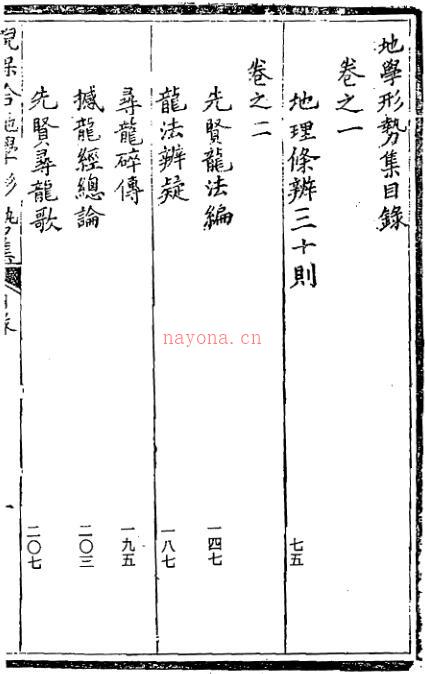 地學形勢集目錄
卷之一
地理條辨三十則 七五
卷之二
先賢龍法編 一四七
龍法辨疑 一八七
尋龍碎傳 一九五
撼龍經總論 二〇三
先賢尋龍歌 二〇七
地學形勢集
目錄
一
nayona.cn